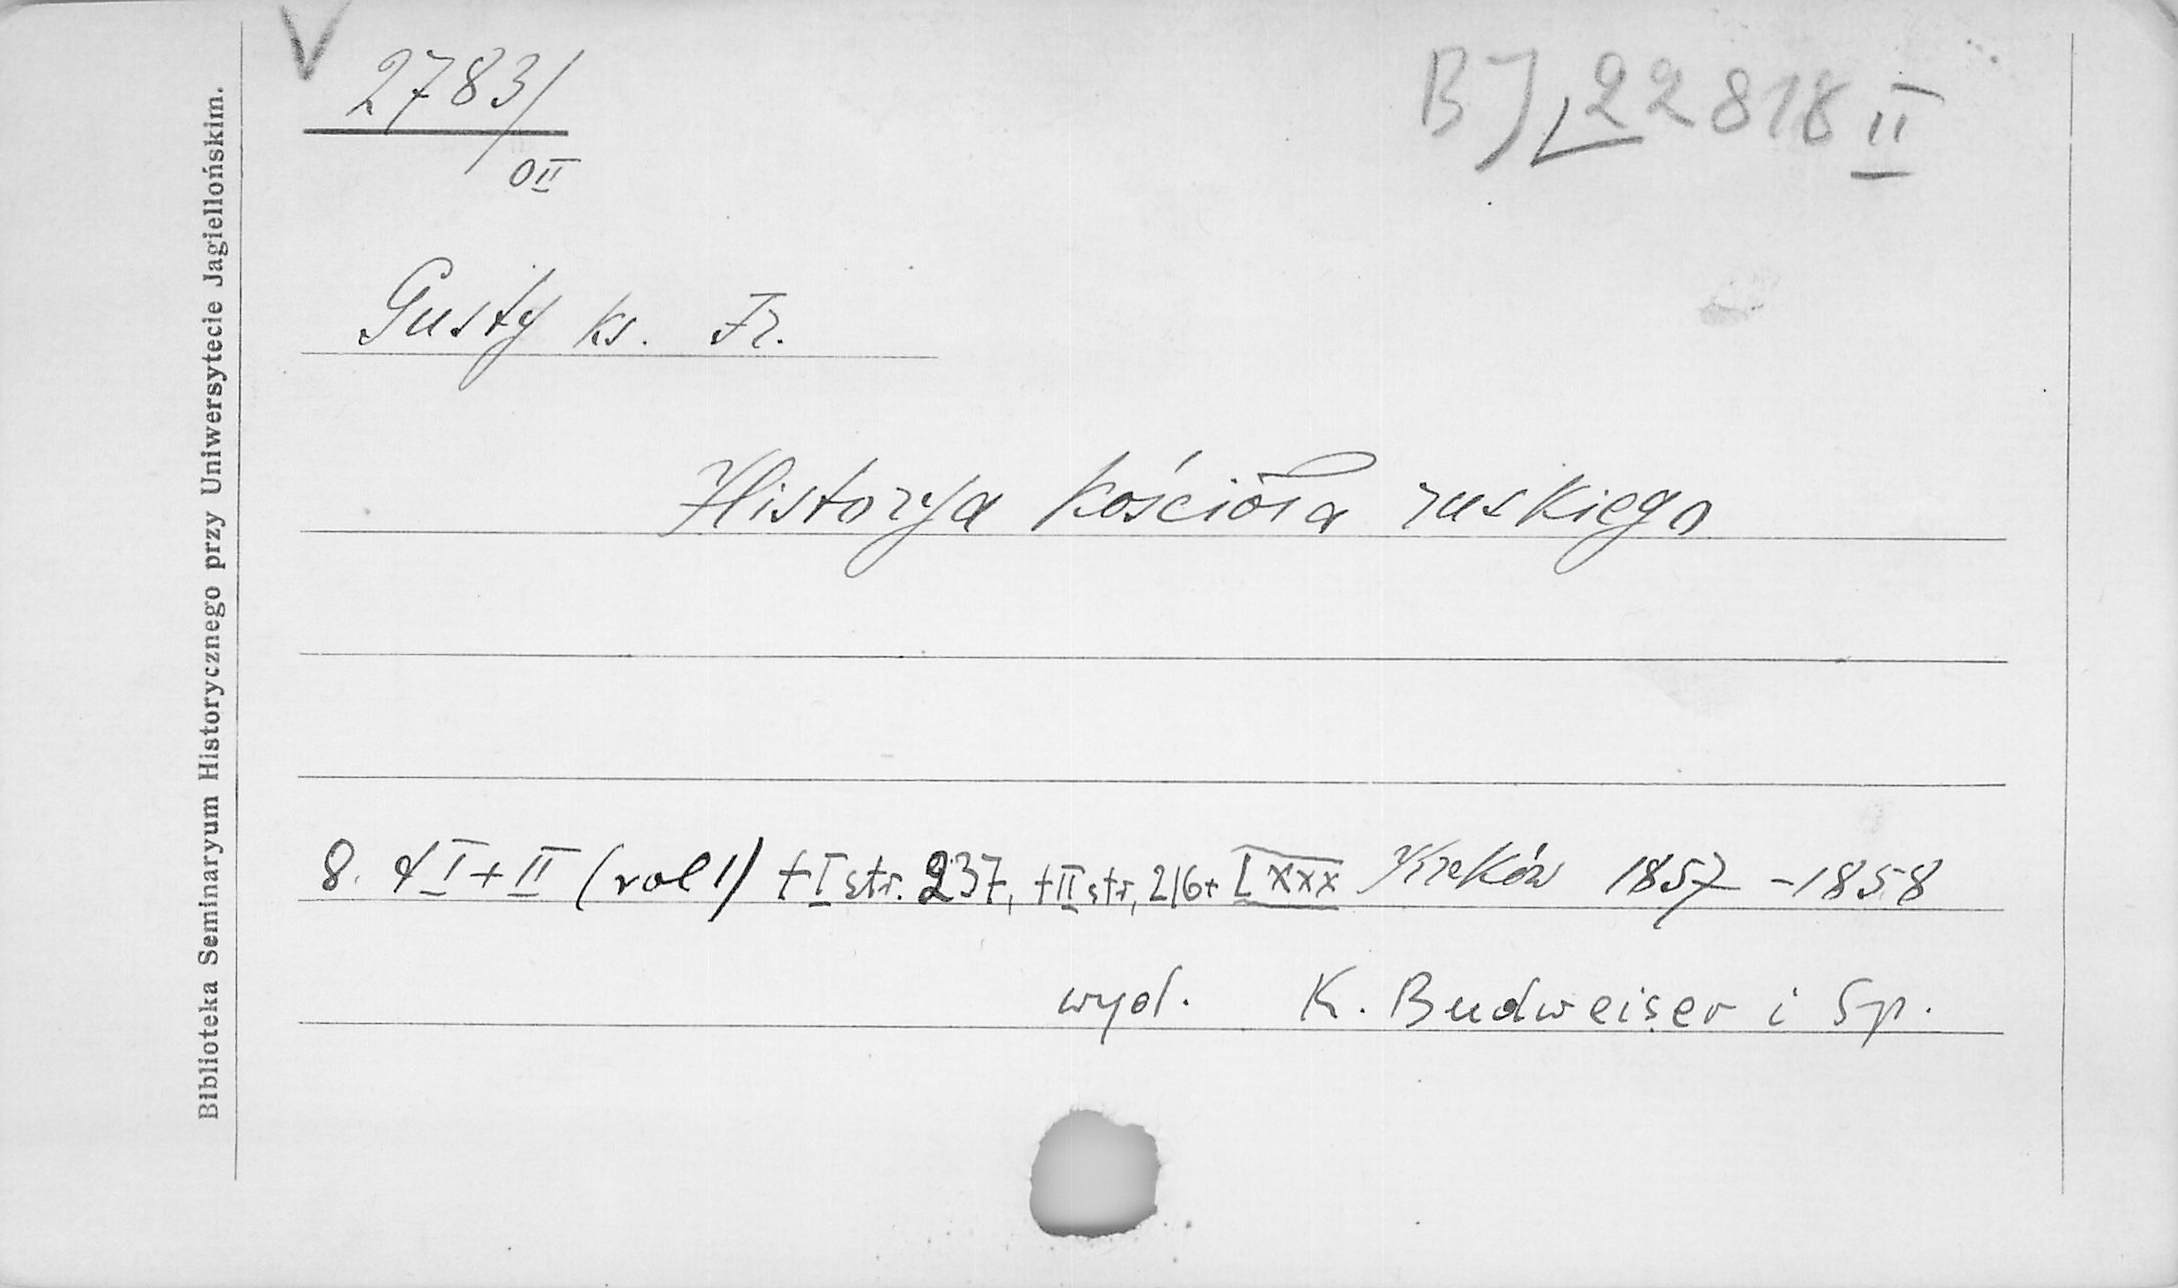 V
2783/
OII
BJ 22818 II
Gusty ks. Fr.
Historya kościoła ruskiego
8. t I + II (vol 1) t I str. 237, t II str. 216 + LXXX Kraków 1857 - 1858
wyd. K. Budweiser i Sp.
Biblioteka Seminaryum Historycznego przy Uniwersytecie Jagiellońskim.